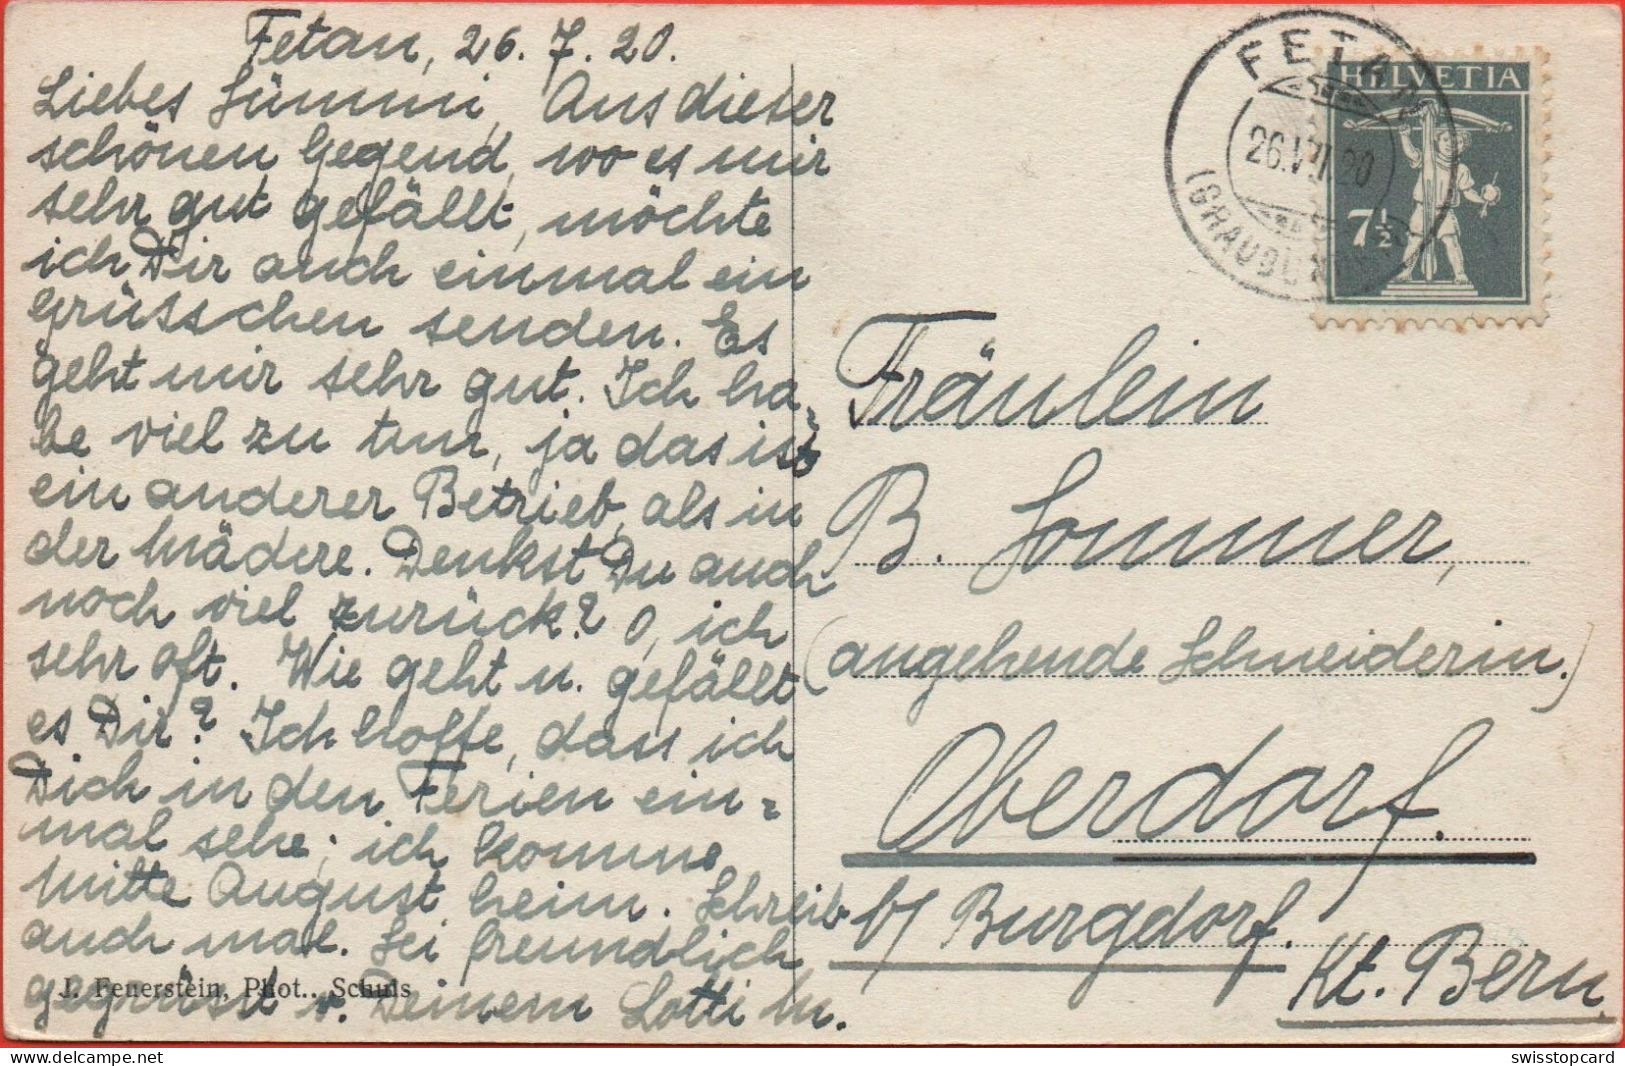 Fetan, 26. 7. 20.
Liebes Sümmi, Aus dieser
schönen Gegend, wo es mir
sehr gut gefällt, möchte
ich Dir auch einmal ein
Grüsschen senden. Es
geht mir sehr gut. Ich ha-
be viel zu tun, ja das ist
ein anderer Betrieb, als in
der Mädere. Denkst Du auch
noch viel zurück? O, ich
sehr oft. Wie geht u. gefällt
es Dir? Ich hoffe, dass ich
Dich in den Ferien ein-
mal sehe; ich komme
Mitte August heim. Schreib
auch mal. Sei freundlich
gegrüsst v. Deinem Lotti M.
J. Feuerstein, Phot.. Schuls
FETAN
26.VII.20
(GRAUBÜNDEN)
HELVETIA
7½
Fräulein
B. Sommer,
(angehende Schneiderin.)
Oberdorf.
b/ Burgdorf.
Kt. Bern.
swisstopcard